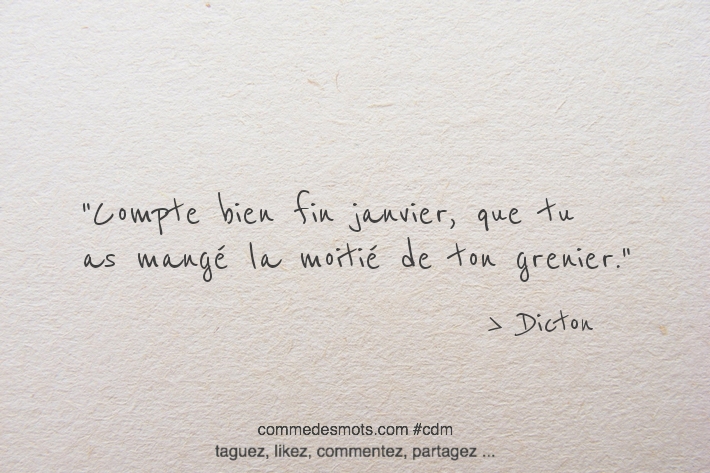 "Compte bien fin janvier, que tu
as mangé la moitié de ton grenier."
> Dicton
commedesmots.com #cdm
taguez, likez, commentez, partagez ...